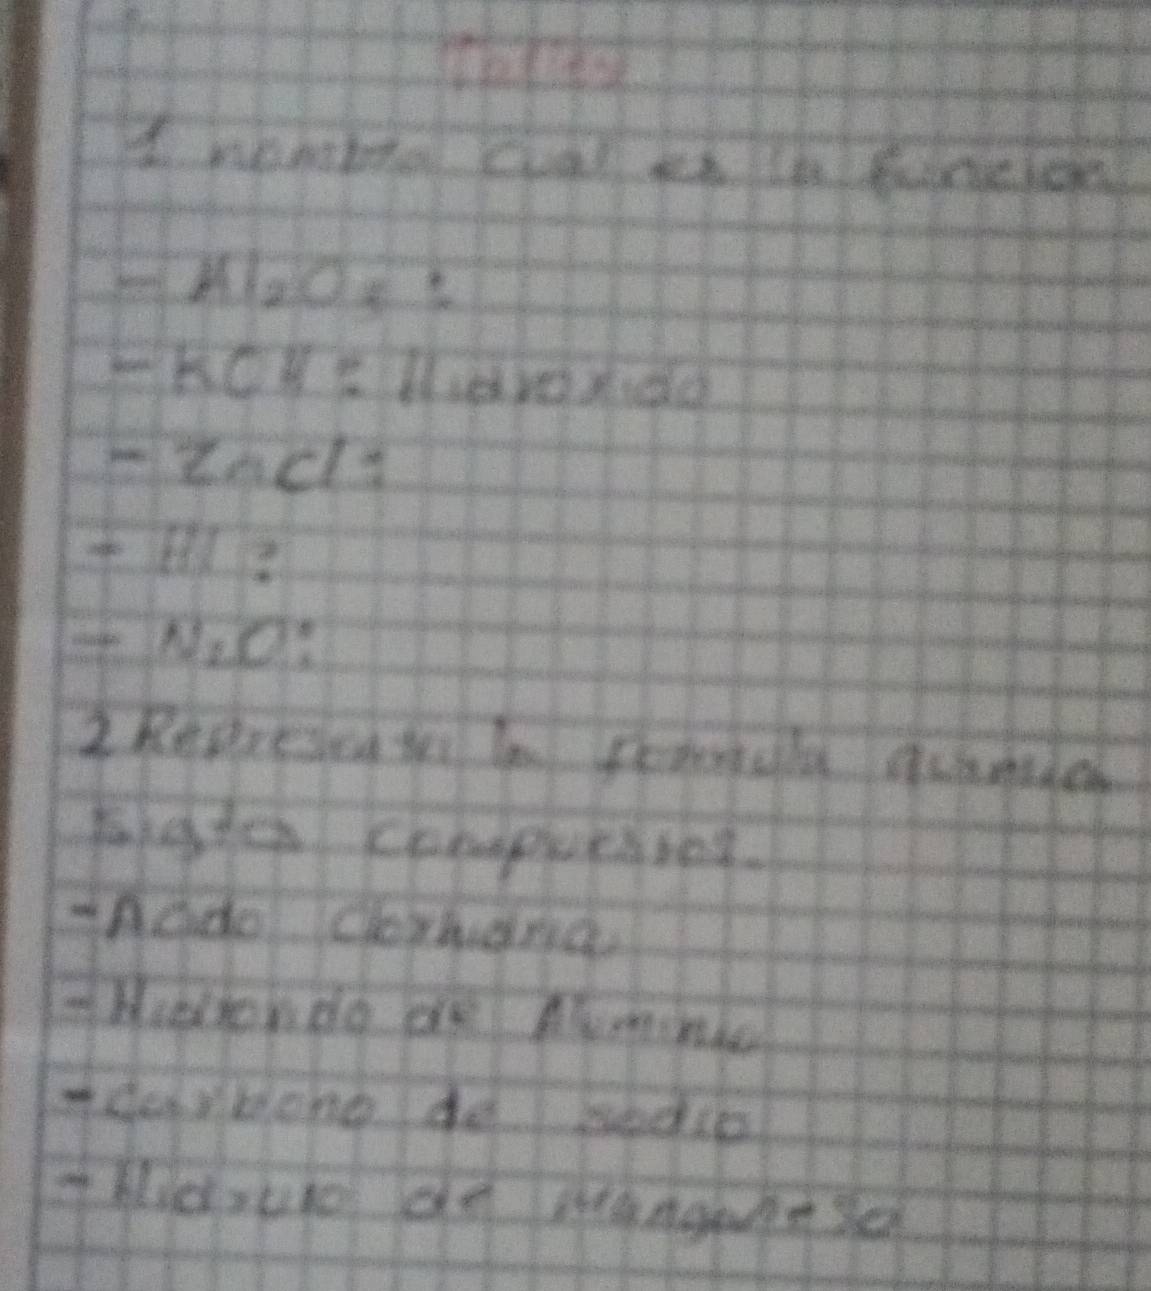 Taller
1 nombre cual es la funcion
- Al2O3:
- KOH: Hidroxido
- ZnCl:
- HI:
- N2O:
2 Representa la formula quimica
compuestos.
- Acido clorhidrico
- Hidroxido de Aluminio
- carbono de sodio
- Hidruro de Manganeso